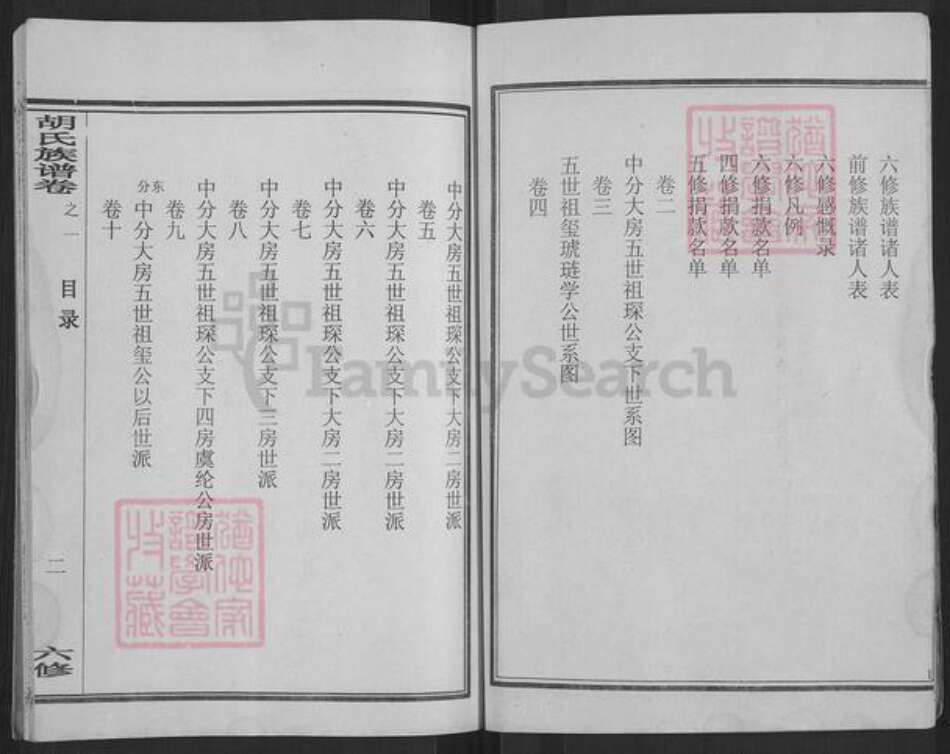 六修族谱诸人表
前修族谱诸人表
六修感慨录
六修凡例
六修捐款名单
四修捐款名单
五修捐款名单
卷二
中分大房五世祖琛公支下世系图
卷三
五世祖玺琥琏学公世系图
卷四
中分大房五世祖琛公支下大房二房世派
卷五
中分大房五世祖琛公支下大房二房世派
卷六
中分大房五世祖琛公支下大房二房世派
卷七
中分大房五世祖琛公支下三房世派
卷八
中分大房五世祖琛公支下四房虞纶公房世派
卷九
东分 中分大房五世祖玺公以后世派
卷十
胡氏族谱卷之一 目录 二 六修
FamilySearch